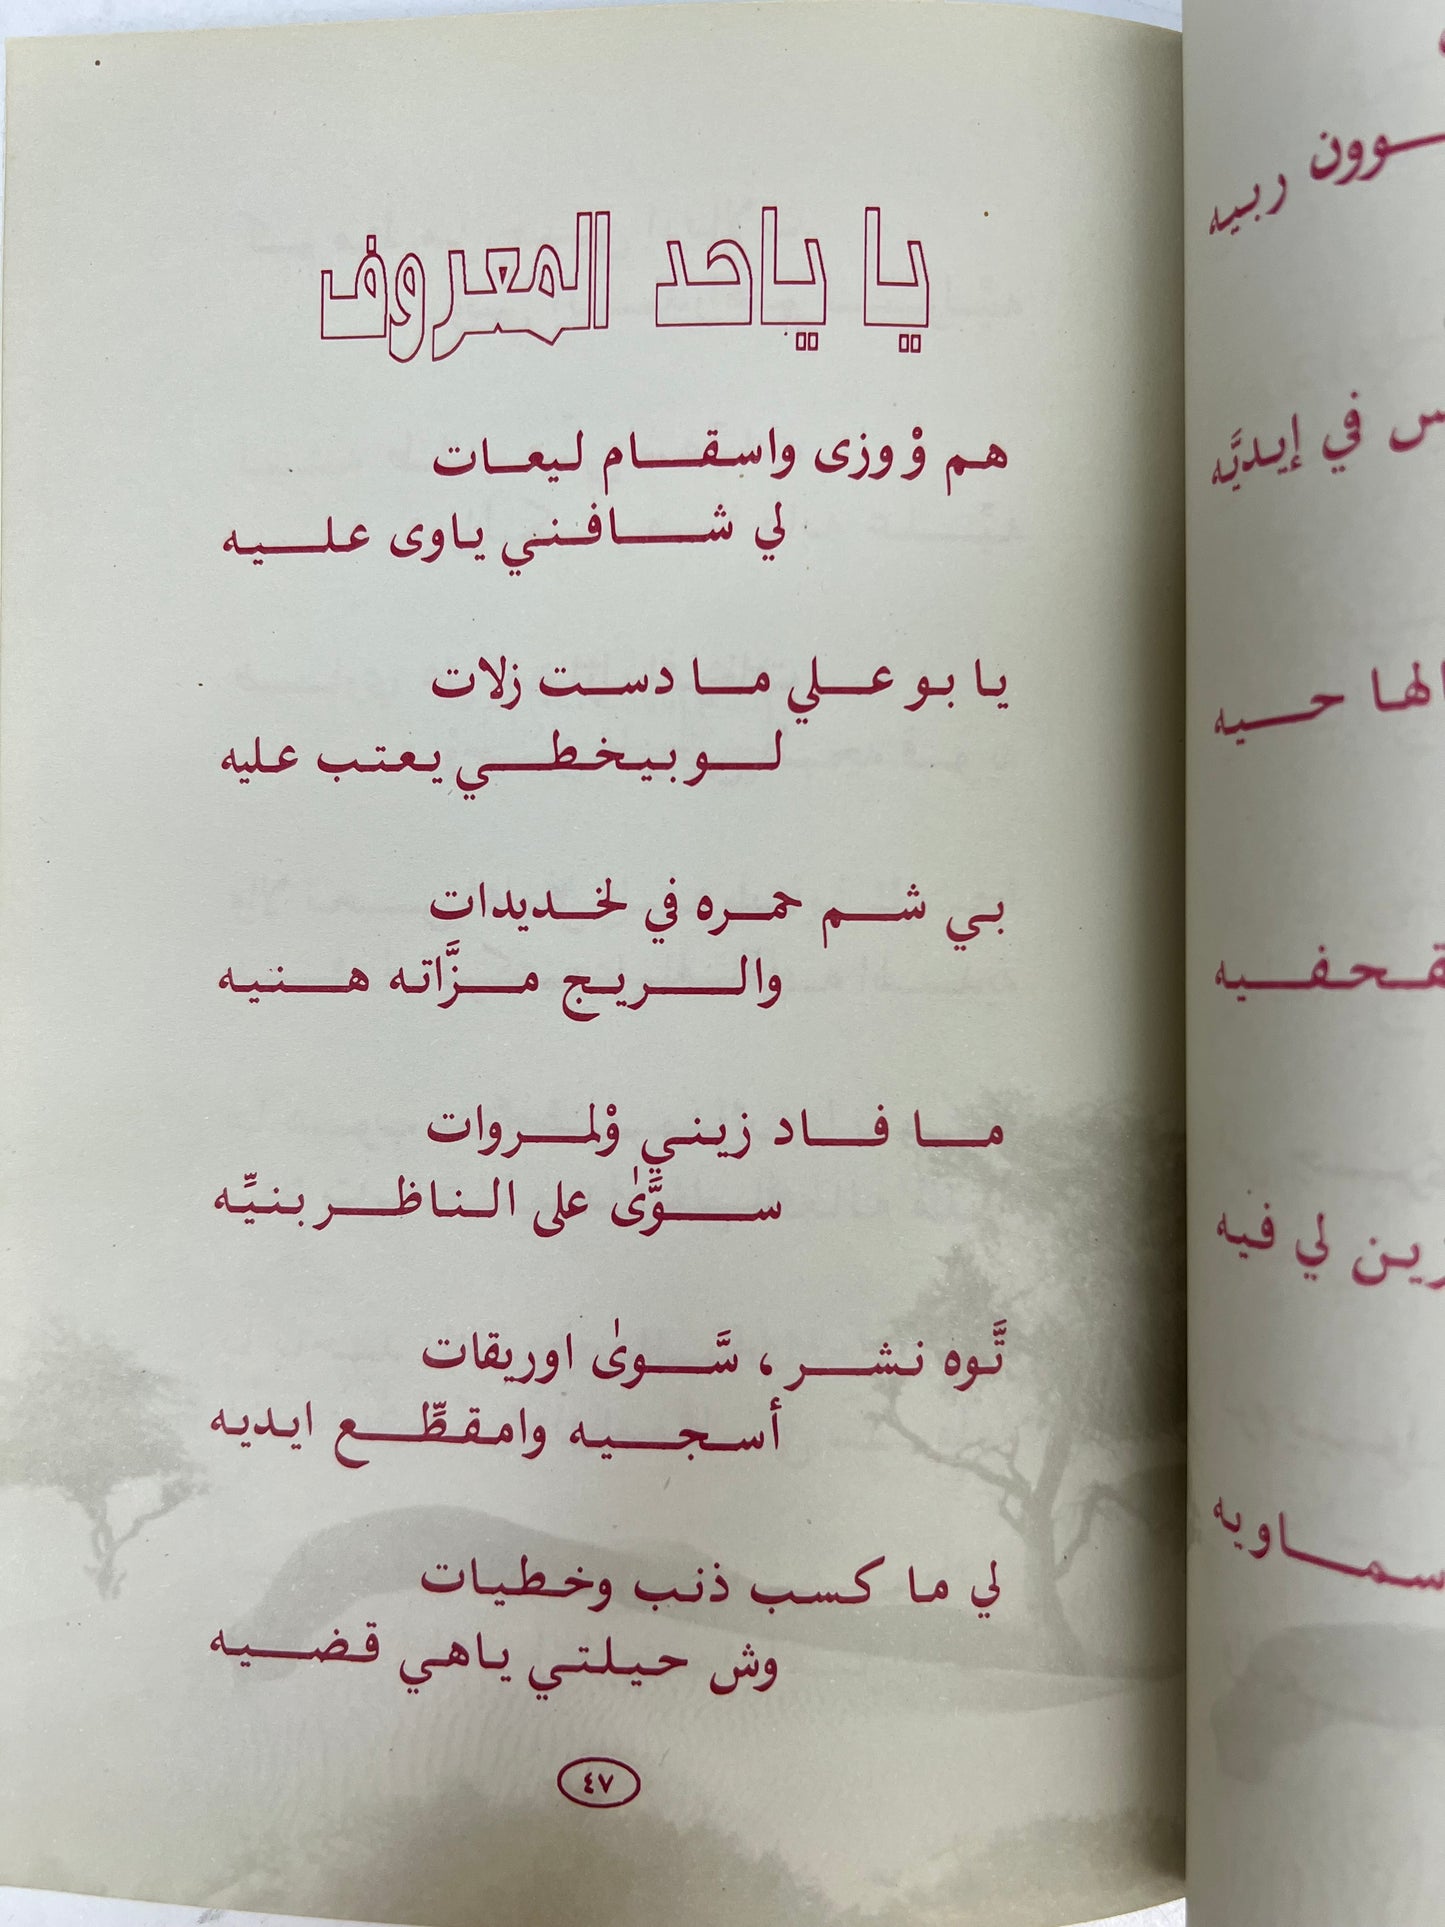 يا ياحد المعروف
هم وْ وزى واسقام ليعات
لي شافني ياوى عليه
يا بو علي ما دست زلات
لو بيخطي يعتب عليه
بي شم حمره في لخديدات
والريج مزَّاته هنيه
ما فاد زيني وْلمروات
سوَّىٰ على الناظر بنيِّه
تَّوه نشر ، سَّوىٰ اوريقات
أسجيه وامقطِّع ايديه
لي ما كسب ذنب وخطيات
وش حيلتي ياهي قضيه
٤٧
ربيه
س في إيديَّه
الها حيه
قحفيه
زين لي فيه
سماويه